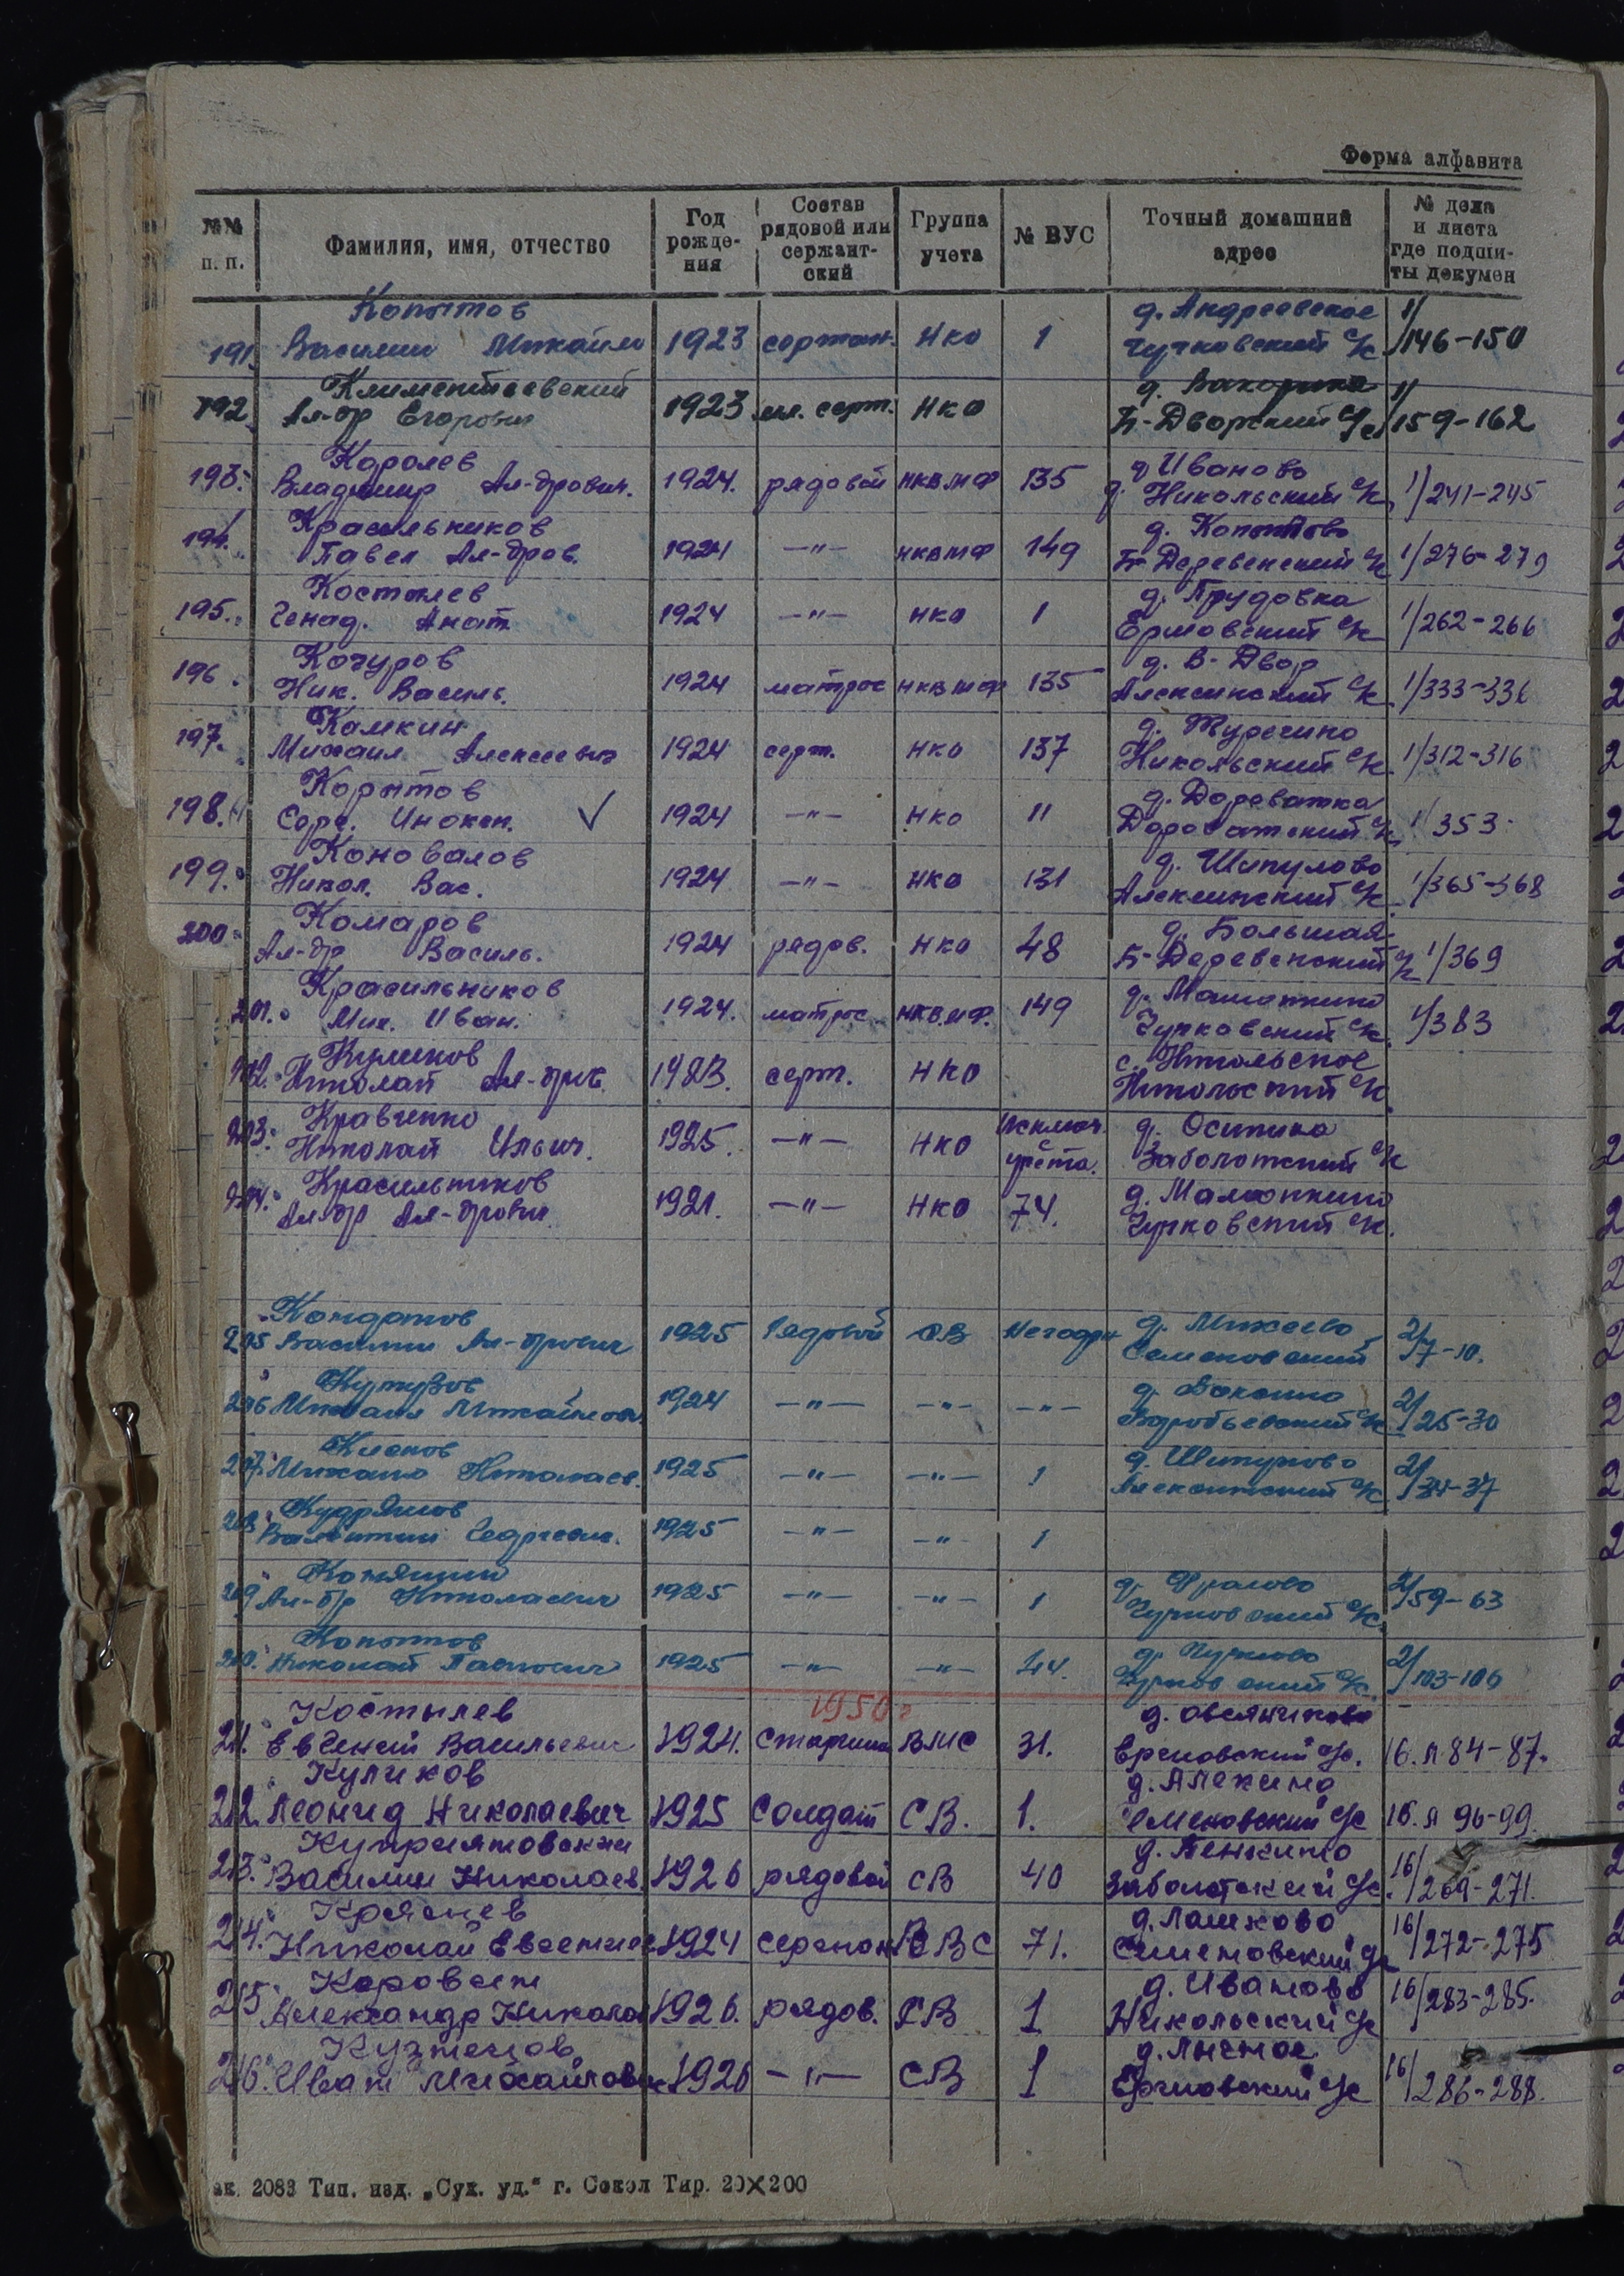 Форма алфавита
№№ п. п. Фамилия, имя, отчество Год рожде- ния Состав рядовой или сержант- ский Группа учета № ВУС Точный домашний адрес № дела и листа где подши- ты докумен
Копытов д. Андреевское 1/
191. Василий Михайл 1923 сержан. НКО 1 Чучковский с/с 146-150
Климентиевский 1/
192. Ал-др Егорович 1923 мл. серж. НКО Б-Дворский с/с 159-162
Королев д. Иваново
193. Владимир Ал-дрович. 1924. рядовой НКВМФ 135 Никольский с/с 1/241-245
Красильников д. Копытово
194. Павел Ал-дров. 1924 —"— НКВМФ 149 Б-Деревенский с/с 1/276-279
Костылев д. Прудовка
195. Генад. Анат. 1924 —"— НКО 1 Ермовский с/с 1/262-266
Кочуров д. В-Двор
196. Ник. Василь. 1924 матрос НКВМФ 135 Алексинский с/с 1/333-336
Камкин д. Туречино
197. Михаил Алексеевич 1924 серж. НКО 137 Никольский с/с 1/312-316
Корытов д. Дороватка
198. Серг. Инокен. ✓ 1924 —"— НКО 11 Дороватский с/с 1/353
Коновалов д. Шипулово
199. Никол. Вас. 1924 —"— НКО 131 Алексинский с/с 1/365-368
Комаров д. Большая
200. Ал-др Василь. 1924 рядов. НКО 48 Б-Деревенский с/с 1/369
Красильников
201. Мих. Иван. 1924. матрос НКВМФ. 149 Чучковский с/с 1/383
Куликов с. Никольское
202. Николай Ал-дров. 1923. серж. НКО Никольский с/с
Кравченко Исключ. д. Осипиха
203. Николай Ильич. 1925. —"— НКО учёта. Заболотский с/с
Красильников
204. Ал-др Ал-дрович 1921. —"— НКО 74. Чучковский с/с.
д. Михеево 2/
205 Василий Ал-дрович 1925 Рядовой СВ Негоден Семеновский 7-10.
Кутузов 2/
206 Михаил Михайлов. 1924 —"— —"— —"— Воробьевский с/с 25-30
Клепов д. Шипулово 2/
207. Михаил Николаев. 1925 —"— —"— 1 Алексинский с/с 34-37
Кудряшов
208. Валентин Георгиевич. 1925 —"— —"— 1
д. Фралово 2/
209 Ал-др Николаевич 1925 —"— —"— 1 Чучковский с/с. 59-63
Копытов д. Чучково 2/
210. Николай Павлович 1925 —"— —"— 44. Чучковский с/с. 103-106
1950 г
Костылев д. Овсянниково
211. Евгений Васильевич 1924. Старшина ВМС 31. Ергновский с/с. 16. л 84-87.
Куликов д. Алекино
212. Леонид Николаевич 1925 Солдат СВ. 1. Семеновский с/с 16. л 96-99.
Куприяновский д. Пенкино
213. Василий Николаев. 1926 рядовой СВ 40 Заболотский с/с. 16/269-271.
д. Лашково
214. Николай Евгение 1924 сержант ВВС 71. Семеновский с/с 16/272-275
д. Иваново
215 Александр Никола 1926. рядов. СВ 1 Никольский с/с 16/283-285.
Кузнецов
216. Иван Михайлович 1926 —"— СВ 1 Ергновский с/с 16/286-288.
ак. 2083 Тип. изд. „Сух. уд.“ г. Сокол Тир. 20×200